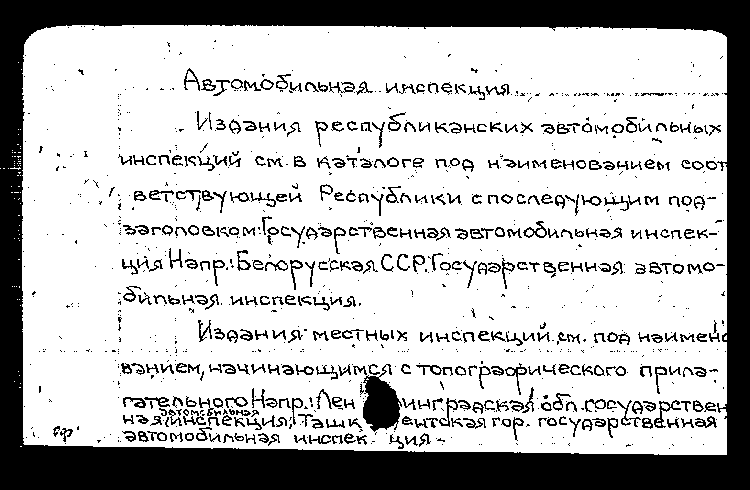 Автомобильная инспекция
Издания республиканских автомобильных
инспекций см. в каталоге под наименованием соот
ветствующей Республики с последующим под-
заголовком: Государственная автомобильная инспек-
ция Напр.: Белорусская ССР. Государственная автомо-
бильная инспекция.
Издания местных инспекций см. под наимено
ванием, начинающимся с топографического прила-
гательного Напр.: Лен инградская обл. государствен
автомобильная
ная инспекция; Ташк ентская гор. государственная
автомобильная инспек ция -